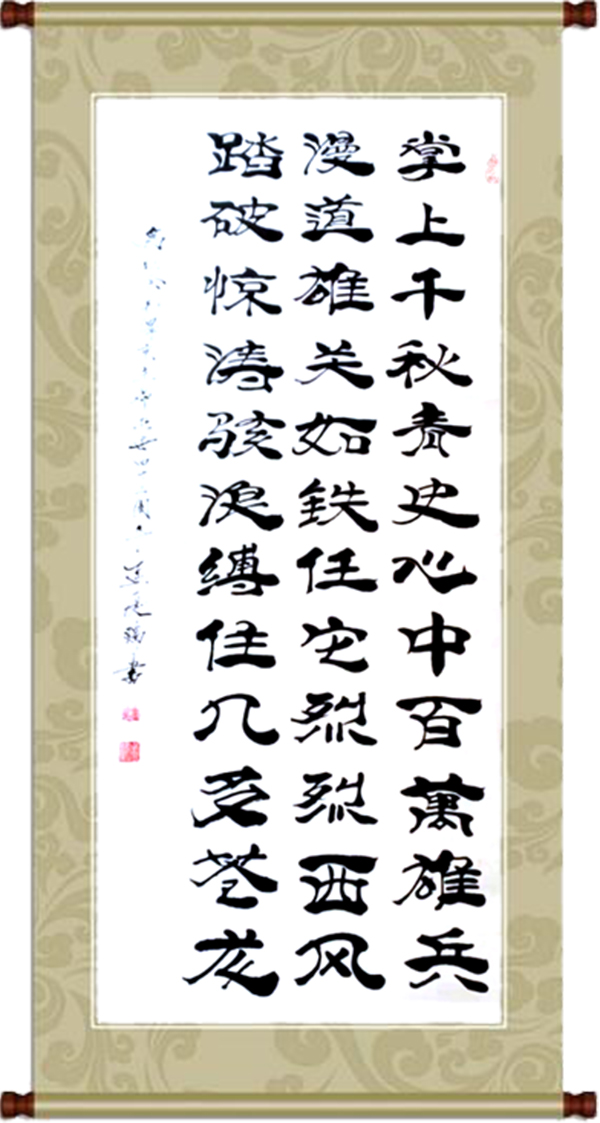 掌上千秋青史心中百萬雄兵
漫道雄关如鉄任它烈烈西风
踏破惊涛骇浪縛住几多苍龙